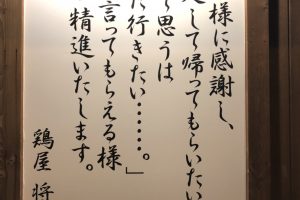 様に感謝し、
して帰ってもらいたい
思うは
た行きたい……。」
言ってもらえる様
精進いたします。
鶏屋 将